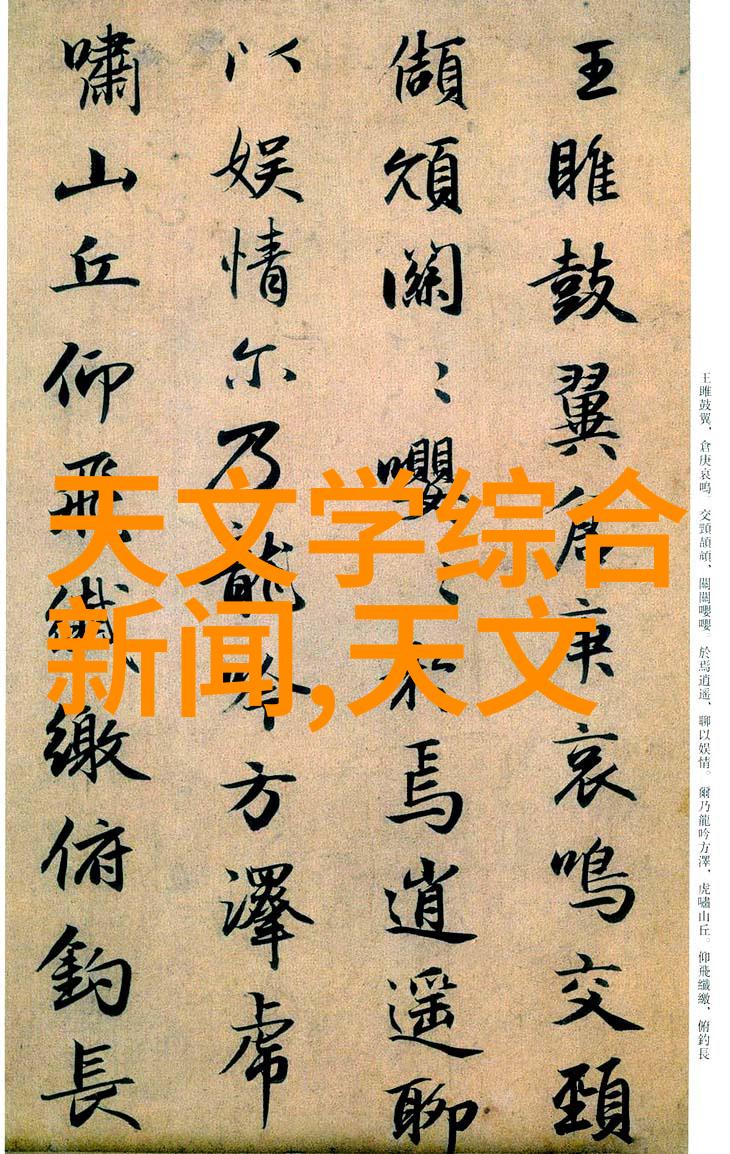 王雎鼓翼倉庚哀鳴交頸
頡頏關〻嚶〻於焉逍遥聊
以娱情尓乃龍吟方澤虎
嘯山丘仰飛纖繳俯釣長
天文学综合
新闻,天文
王雎鼓翼,倉庚哀鳴。交頸頡頏、關關嚶嚶。於焉逍遥,聊以娱情。爾乃龍吟方澤,虎嘯山丘。仰飛纖繳,俯釣長